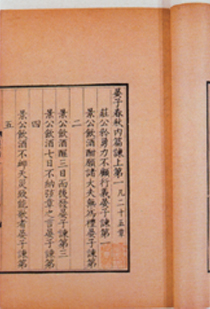 晏子春秋內篇諫上第一 凡二十五章
莊公矜勇力不顧行義晏子諫第一
景公飲酒酣願諸大夫無為禮晏子諫第
二
景公飲酒酲三日而後發晏子諫第三
景公飲酒七日不納弦章之言晏子諫第
四
景公飲酒不卹天災致能歌者晏子諫第
五